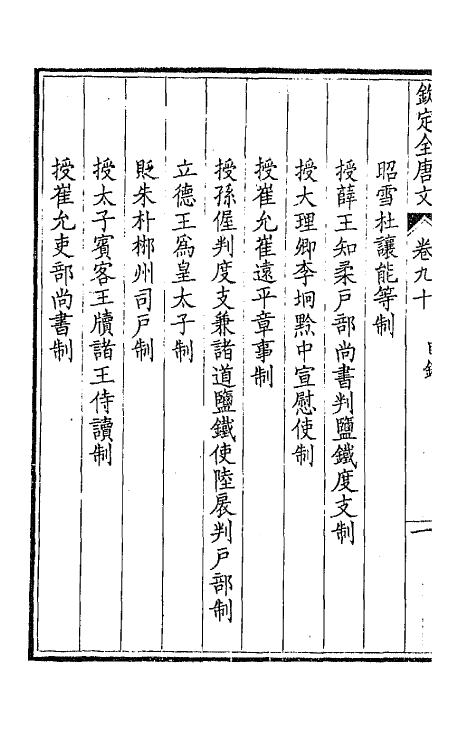 欽定全唐文
卷九十
目錄
一
昭雪杜讓能等制
授薛王知柔戸部尚書判鹽鐵度支制
授大理卿李坰黔中宣慰使制
授崔允崔遠平章事制
授孫偓判度支兼諸道鹽鐵使陸扆判戸部制
立德王爲皇太子制
貶朱朴郴州司戸制
授太子賓客王牘諸王侍讀制
授崔允吏部尚書制